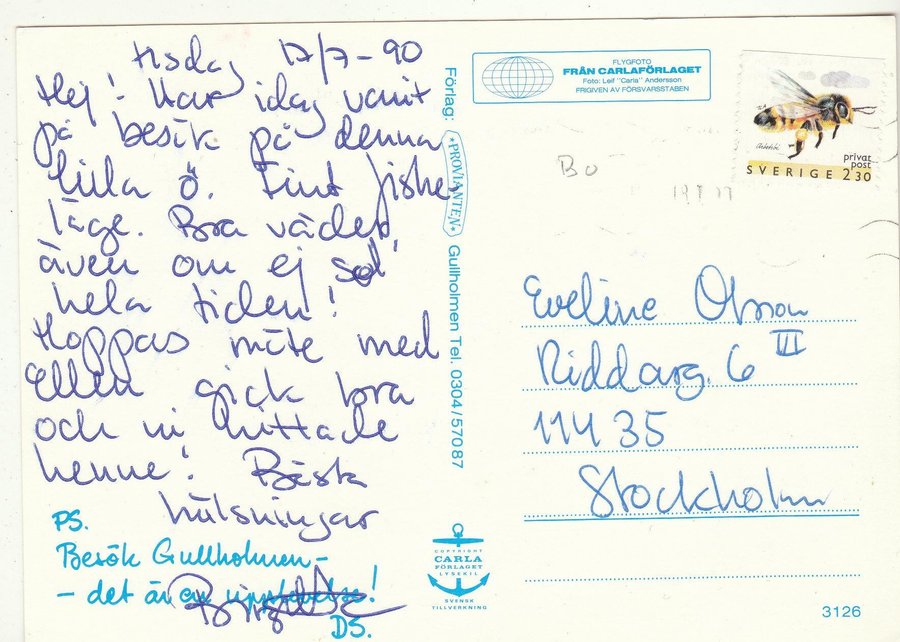 tisdag 17/7-90
Hej! Har idag varit
på besök på denna
lilla ö. Fint fiske-
läge. Bra väder
även om ej sol
hela tiden!
Hoppas möte med
Ellen gick bra
och ni hittade
henne! Bästa
hälsningar
PS.
Besök Gullholmen-
- det är en upplevelse!
DS.
Förlag: *PROVIANTEN* Gullholmen Tel. 0304/57087
FLYGFOTO
FRÅN CARLAFÖRLAGET
Foto: Leif "Carla" Andersson
FRIGIVEN AV FÖRSVARSSTABEN
privat
post
SVERIGE 2.30
Bo
Eveline Olsson
Riddarg. 6 III
114 35
Stockholm
COPYRIGHT
CARLA
FÖRLAGET
LYSEKIL
SVENSK
TILLVERKNING
3126